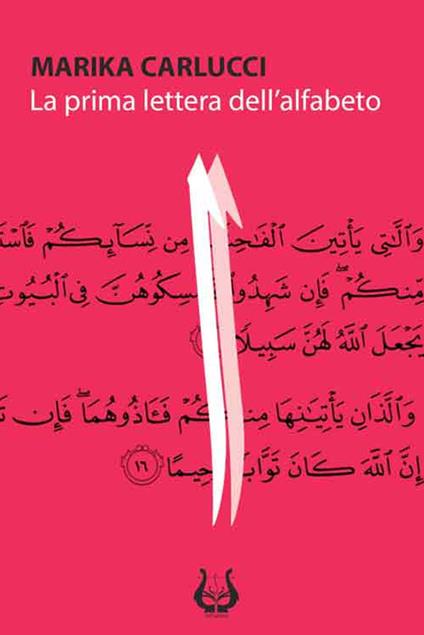 MARIKA CARLUCCI
La prima lettera dell'alfabeto
وَٱلَّٰتِى يَأْتِينَ ٱلْفَٰحِ مِن نِّسَآئِكُمْ فَٱسْتَ
مِّنكُمْ ۖ فَإِن شَهِدُوا مْسِكُوهُنَّ فِى ٱلْبُيُوتِ
يَجْعَلَ ٱللَّهُ لَهُنَّ سَبِيلًا
وَٱلَّذَانِ يَأْتِيَٰنِهَا مِنكُمْ فَـَٔاذُوهُمَا ۖ فَإِن تَ
إِنَّ ٱللَّهَ كَانَ تَوَّابًا حِيمًا ١٦